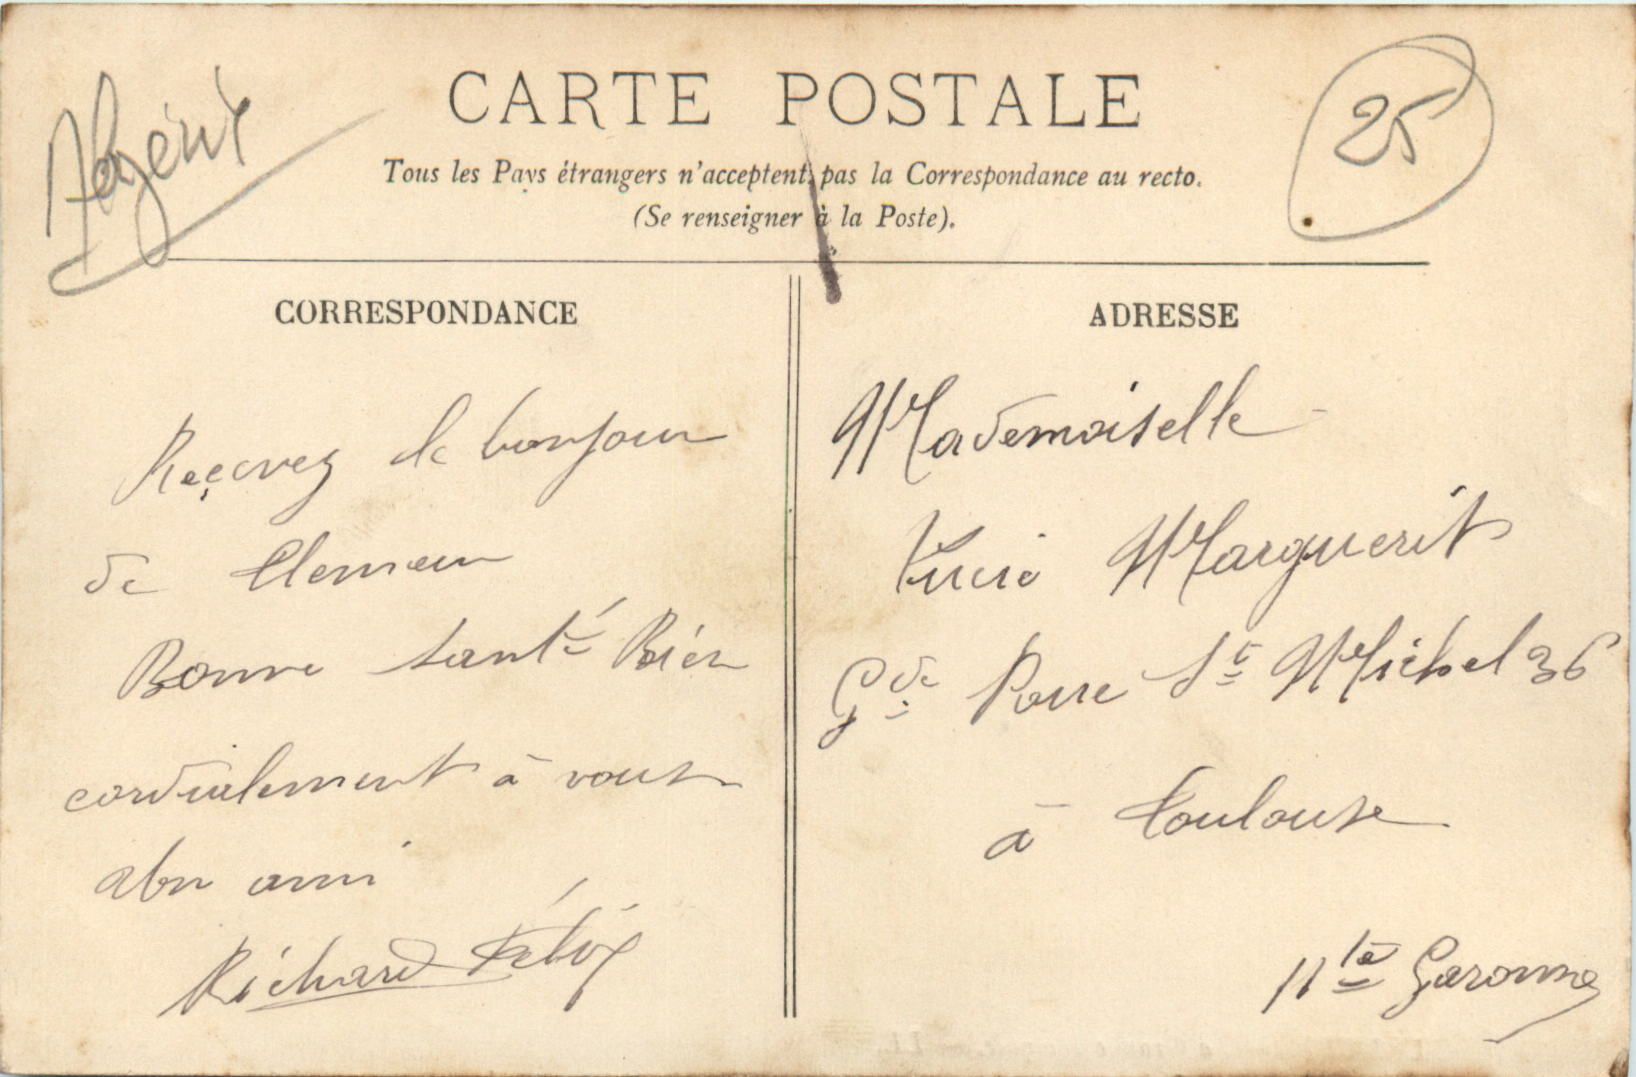 25
CARTE POSTALE
Tous les Pays étrangers n'acceptent pas la Correspondance au recto.
(Se renseigner à la Poste).
CORRESPONDANCE
Reçevez le bonjour
de
Bonne santé Bien
cordialement à vous
ami
Richard Félix
ADRESSE
Mademoiselle
Lucie Marguerit
Gde Rue St Michel 36
à Toulouse
Hte Garonne